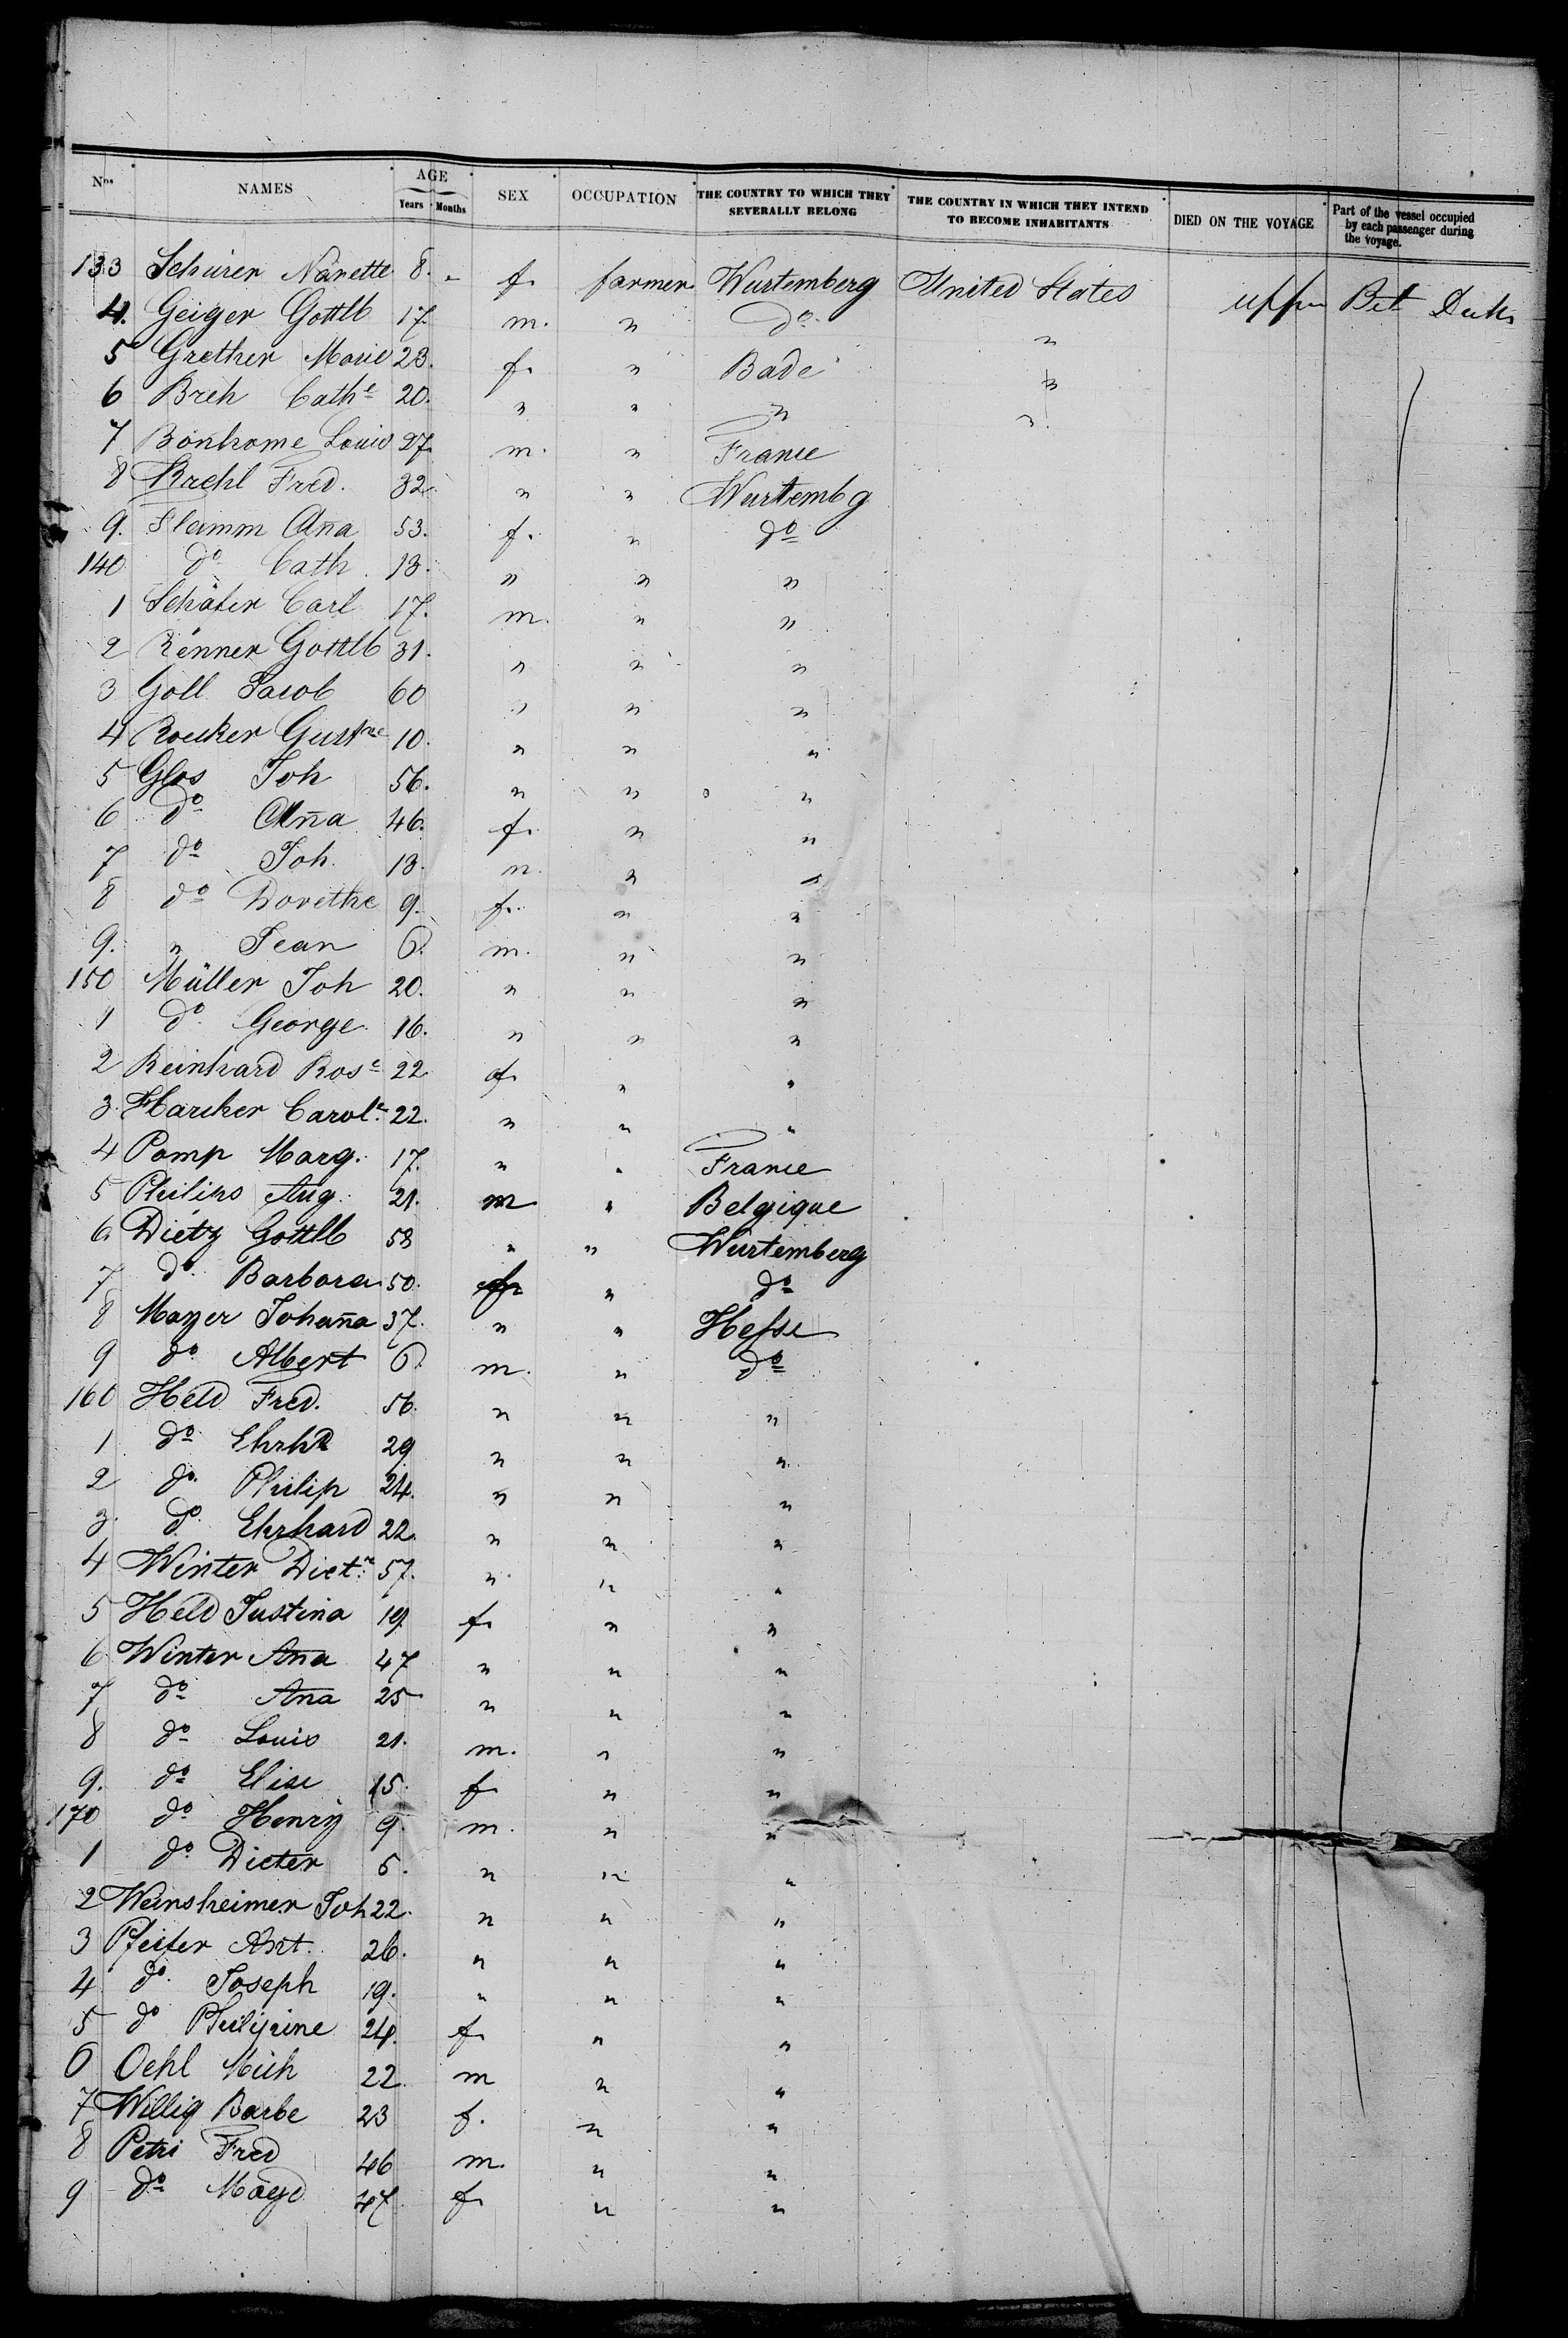 Nos NAMES AGE Years Months SEX OCCUPATION THE COUNTRY TO WHICH THEY SEVERALLY BELONG THE COUNTRY IN WHICH THEY INTEND TO BECOME INHABITANTS DIED ON THE VOYAGE Part of the vessel occupied by each passenger during the voyage.
133 Schürer Nanette 8. " f. farmer Wurtemberg United States upper Bet Decks
4. Geiger Gottlb 17. m. " do "
5 Grether Marie 23. f. " Bade "
6 Breh Cathe 20. " " " "
7 Bonhome Louis 27. m. " France
8 Krehl Fred. 32. " " Wurtembg
9. Flamm Ana 53. f. " do
140 do Cath. 13. " " "
1 Schäfer Carl 17. m. " "
2 Renner Gottlb 31. " " "
3 Goll Jacob 60 " " "
4 Roecker Gustve 10. " " "
5 Glos Joh 56. " " "
6 do Ana 46. f. " "
7 do Joh. 13. m. " "
8 do Dorethe 9. f. " "
9. " Jean 6. m. " "
150 Müller Joh 20. " " "
1 do George 16. " " "
2 Reinhard Rose 22 f. " "
3. Harcher Carole 22. " " "
4 Pomp Marg. 17. " " France
5 Philips Aug. 21. m " Belgique
6. Dietz Gottlb 58 " " Wurtemberg
7 do Barbara 50. f. " do
8 Mayer Johana 37. " " Hesse
9 do Albert 6. m. " do
160 Held Fred. 56. " " "
1 do Ehrhd 29 " " "
2 do Philip 24. " " "
3. do Ehrhard 22. " " "
4 Winter Dietr 57. " " "
5 Held Justina 19. f. " "
6 Winter Ana 47 " " "
7 do Ana 25 " " "
8 do Louis 21. m. " "
9. do Elise 15. f " "
170 do Henry 9. m. " "
1 do Dieter 5. " " "
2 Weinsheimer Joh 22. " " "
3 Pfeifer Ant. 26. " " "
4 do Joseph 19. " " "
5 do Philipine 24. f. " "
6 Oehl Mich 22. m " "
7 Willig Barbe 23 f. " "
8 Petri Fred 46 m. " "
9 do Magd 47. f. " "